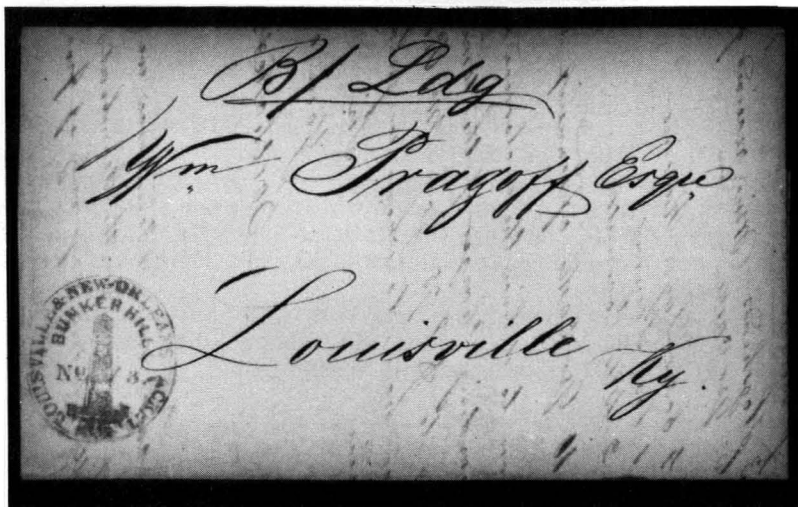 B/ Ldg
Wm Pragoff Esqre
Louisville Ky.
LOUISVILLE & NEW-ORLEANS PACKET
BUNKER HILL
No 3